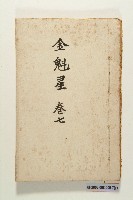 金魁星 卷七